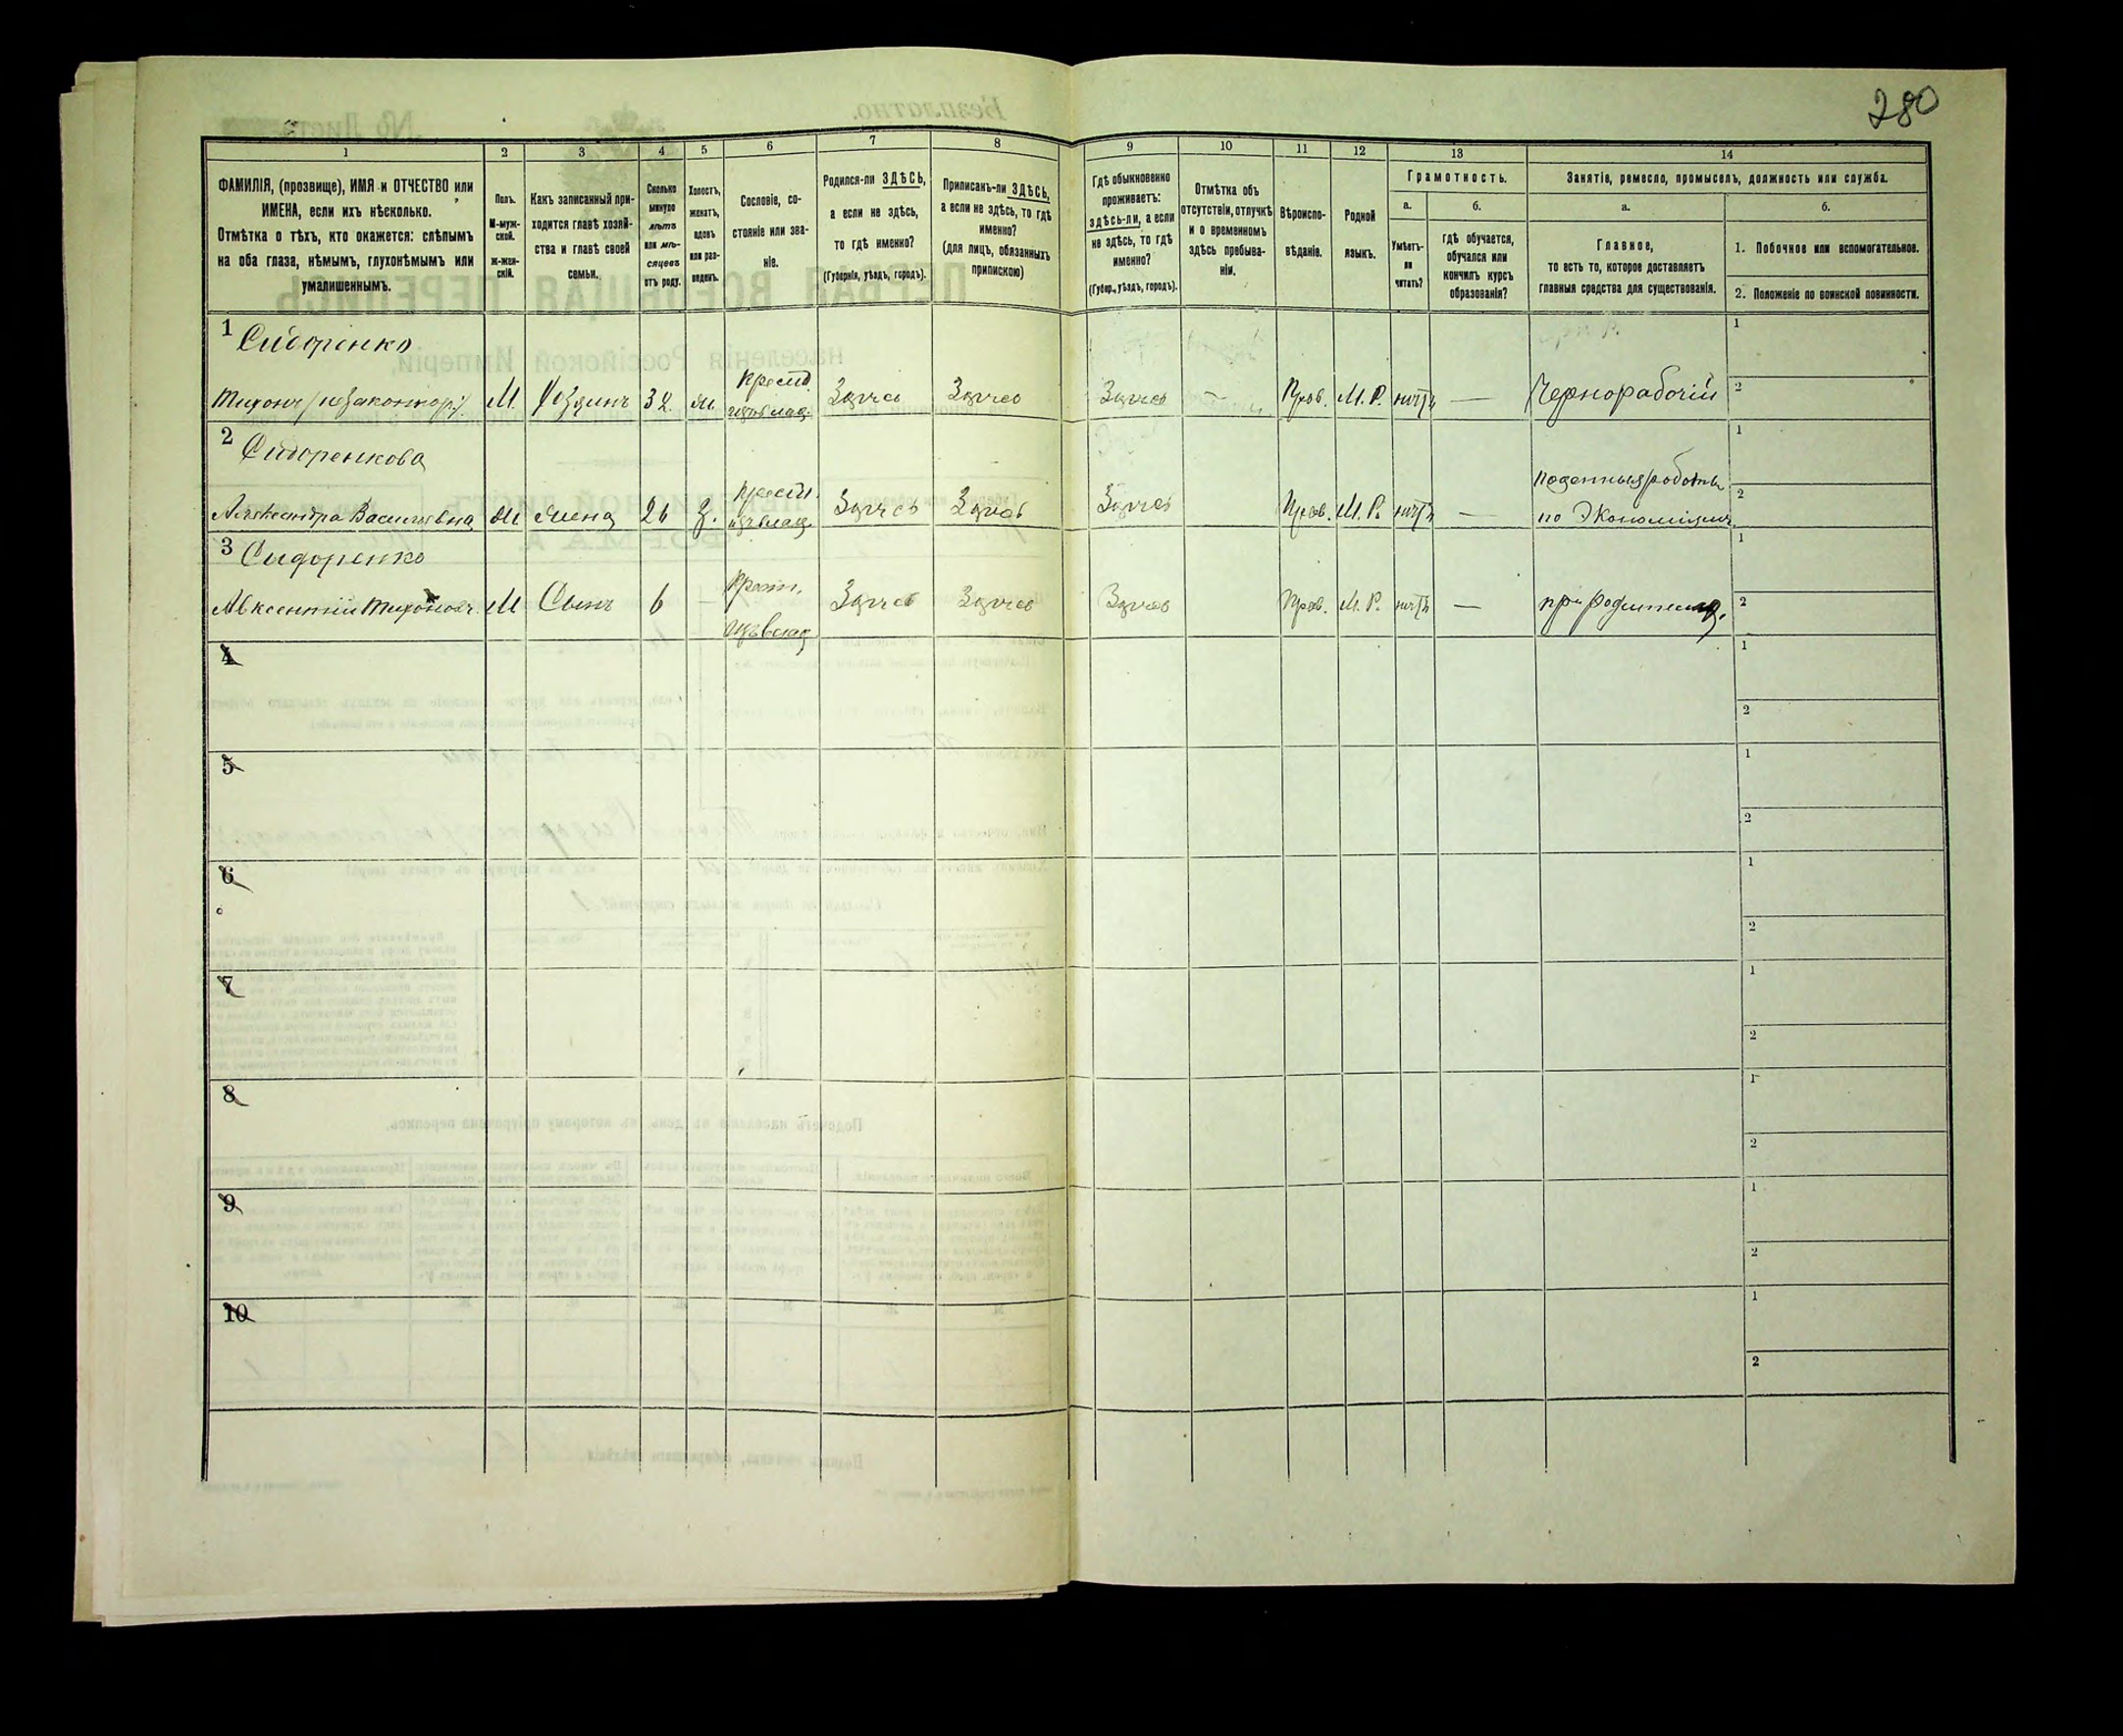 280
1
2
3
4
5
6
7
8
9
10
11
12
13
14
ФАМИЛІЯ, (прозвище), ИМЯ и ОТЧЕСТВО или
ИМЕНА, если ихъ нѣсколько.
Отмѣтка о тѣхъ, кто окажется: слѣпымъ
на оба глаза, нѣмымъ, глухонѣмымъ или
умалишеннымъ.
Полъ.
М-муж-
ской.
ж-жен-
скій.
Какъ записанный при-
ходится главѣ хозяй-
ства и главѣ своей
семьи.
Сколько
минуло
лѣтъ
или мѣ-
сяцевъ
отъ роду.
Холостъ,
женатъ,
вдовъ
или раз-
веденъ.
Сословіе, со-
стояніе или зва-
ніе.
Родился-ли ЗДѢСЬ,
а если не здѣсь,
то гдѣ именно?
(Губернія, уѣздъ, городъ).
Приписанъ-ли ЗДѢСЬ,
а если не здѣсь, то гдѣ
именно?
(для лицъ, обязанныхъ
припискою)
Гдѣ обыкновенно
проживаетъ:
здѣсь-ли, а если
не здѣсь, то гдѣ
именно?
(Губер., уѣздъ, городъ).
Отмѣтка объ
отсутствіи, отлучкѣ
и о временномъ
здѣсь пребыва-
ніи.
Вѣроиспо-
вѣданіе.
Родной
языкъ.
Грамотность.
а.
Умѣетъ-
ли
читать?
б.
гдѣ обучается,
обучался или
кончилъ курсъ
образованія?
Занятіе, ремесло, промыселъ, должность или служба.
а.
Главное,
то есть то, которое доставляетъ
главныя средства для существованія.
б.
1. Побочное или вспомогательное.
2. Положеніе по воинской повинности.
1 Сидоренко
Тихонъ М. Хозяинъ 32 ж. Крест. Здѣсь Здѣсь Здѣсь — Прав. М. Р. нѣтъ — Чернорабочій
1
2
2 Сидоренкова
Александра Васильевна жена 26 З. Крест. Здѣсь Здѣсь Здѣсь Прав. М. Р. нѣтъ — поденныя работы
по
1
2
3 Сидоренко
Авксентій М Сынъ 6 — Крест. Здѣсь Здѣсь Здѣсь Прав. М. Р. нѣтъ — при
1
2
4
1
2
5
1
2
6
1
2
7
1
2
8
1
2
9
1
2
10
1
2